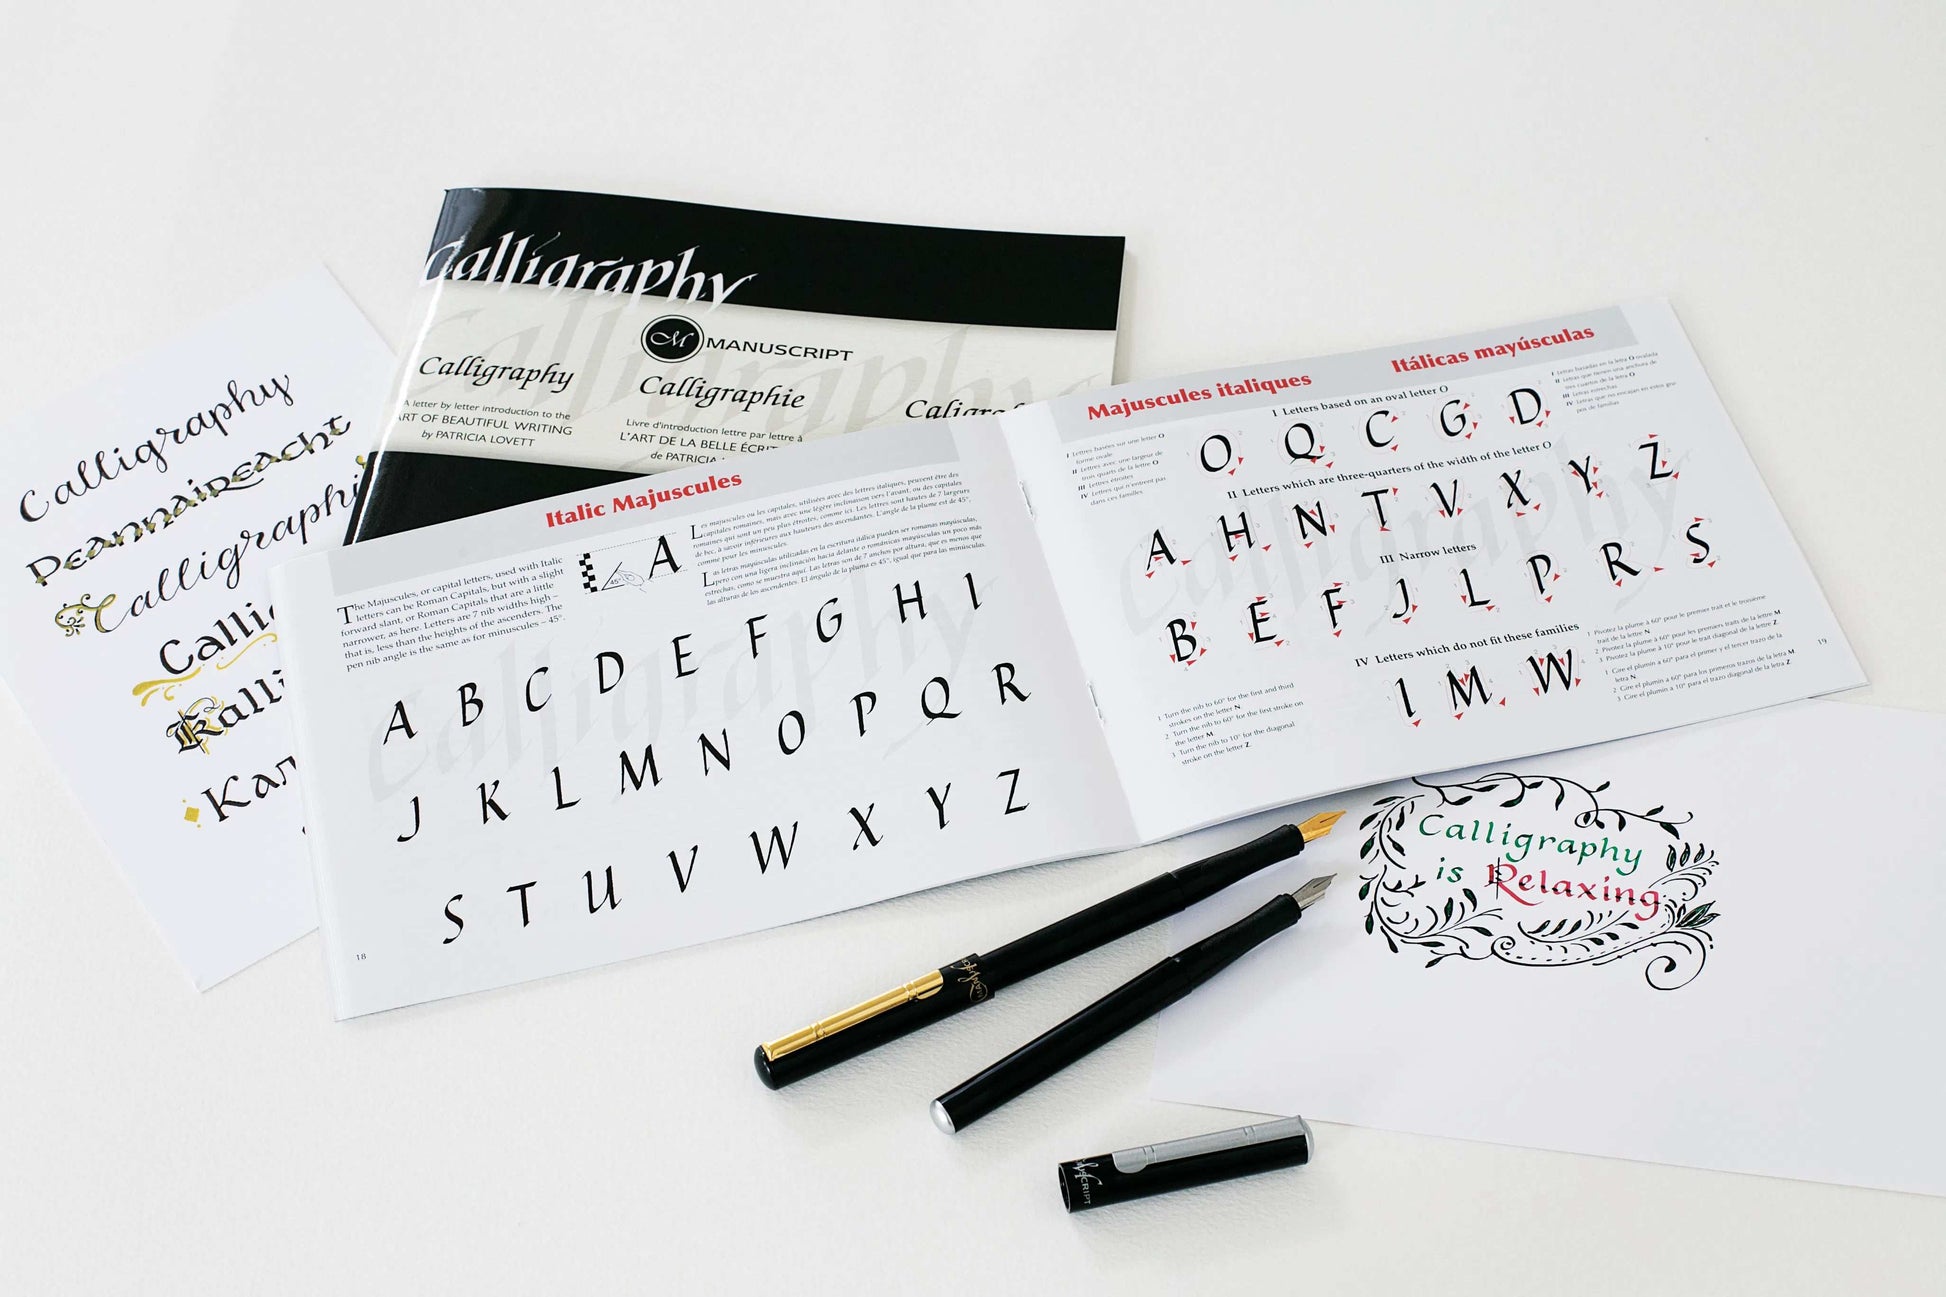 Calligraphy
Peannaireacht
Calligraphi
Calli
Kalli
Kar
Calligraphy
M MANUSCRIPT
Calligraphy
A letter by letter introduction to the
ART OF BEAUTIFUL WRITING
by PATRICIA LOVETT
Calligraphie
Livre d'introduction lettre par lettre à
L'ART DE LA BELLE ÉCRIT
de PATRICIA
Caligra
Italic Majuscules
The Majuscules, or capital letters, used with Italic
letters can be Roman Capitals, but with a slight
forward slant, or Roman Capitals that are a little
narrower, as here. Letters are 7 nib widths high –
that is, less than the heights of the ascenders. The
pen nib angle is the same as for minuscules – 45°.
45°
A
Les majuscules ou les capitales, utilisées avec des lettres italiques, peuvent être des
capitales romaines, mais avec une légère inclinaison vers l'avant, ou des capitales
romaines qui sont un peu plus étroites, comme ici. Les lettres sont hautes de 7 largeurs
de bec, à savoir inférieures aux hauteurs des ascendantes. L'angle de la plume est de 45°,
comme pour les minuscules.
Las letras mayúsculas utilizadas en la escritura itálica pueden ser romanas mayúsculas,
pero con una ligera inclinación hacia delante o románicas mayúsculas un poco más
estrechas, como se muestra aquí. Las letras son de 7 anchos por altura, que es menos que
las alturas de los ascendientes. El ángulo de la pluma es 45°, igual que para las minúsculas.
A B C D E F G H I
J K L M N O P Q R
S T U V W X Y Z
18
Majuscules italiques
Itálicas mayúsculas
I Lettres basées sur une lettre O
forme ovale
II Lettres avec une largeur de
trois quarts de la lettre O
III Lettres étroites
IV Lettres qui n'entrent pas
dans ces familles
I Letras basadas en la letra O ovalada
II Letras que tienen una anchura de
tres cuartos de la letra O
III Letras estrechas
IV Letras que no encajan en estos gru-
pos de familias
I Letters based on an oval letter O
O Q C G D
II Letters which are three-quarters of the width of the letter O
A H N T V X Y Z
III Narrow letters
B E F J L P R S
IV Letters which do not fit these families
I M W
1 Turn the nib to 60° for the first and third
strokes on the letter N.
2 Turn the nib to 60° for the first stroke on
the letter M.
3 Turn the nib to 10° for the diagonal
stroke on the letter Z.
1 Pivotez la plume à 60° pour le premier trait et le troisième
trait de la lettre N.
2 Pivotez la plume à 60° pour les premiers traits de la lettre M.
3 Pivotez la plume à 10° pour le trait diagonal de la lettre Z.
1 Gire el plumín a 60° para el primer y el tercer trazo de la
letra N.
2 Gire el plumín a 60° para los primeros trazos de la letra M.
3 Gire el plumín a 10° para el trazo diagonal de la letra Z.
19
Calligraphy
is Relaxing
MANUSCRIPT